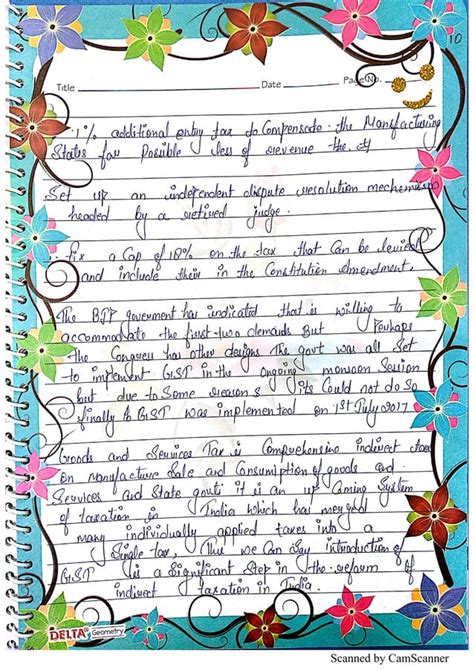 10
Title Date Page No.
1% additional entry tax to Compensate the Manufacturing
States for Possible loss of revenue the
Set up an independent dispute resolution mechanism
headed by a retired judge.
fix a Cap of 18% on the tax that Can be levied
and include their in the Constitution amendment.
The BJP goverment has indicated that is willing to
accommodate the first two demands But Perhaps
the Congress has other designs The govt was all Set
to implement GST in the ongoing monsoon Session
but due to Some reason's its Could not do So
finally to GST was implemented on 1st July 2017
Goods and Services Tax is Comprehensive indirect
on Manufacture Sale and Consumption of goods and
Services and State govt it is an up Coming System
of taxation in India which has merged
many individually applied taxes into a
Single tax, Thus we Can Say introduction of
GST is a Significant Step in the reform of
indirect taxation in India.
DELTA Geometry
Scanned by CamScanner